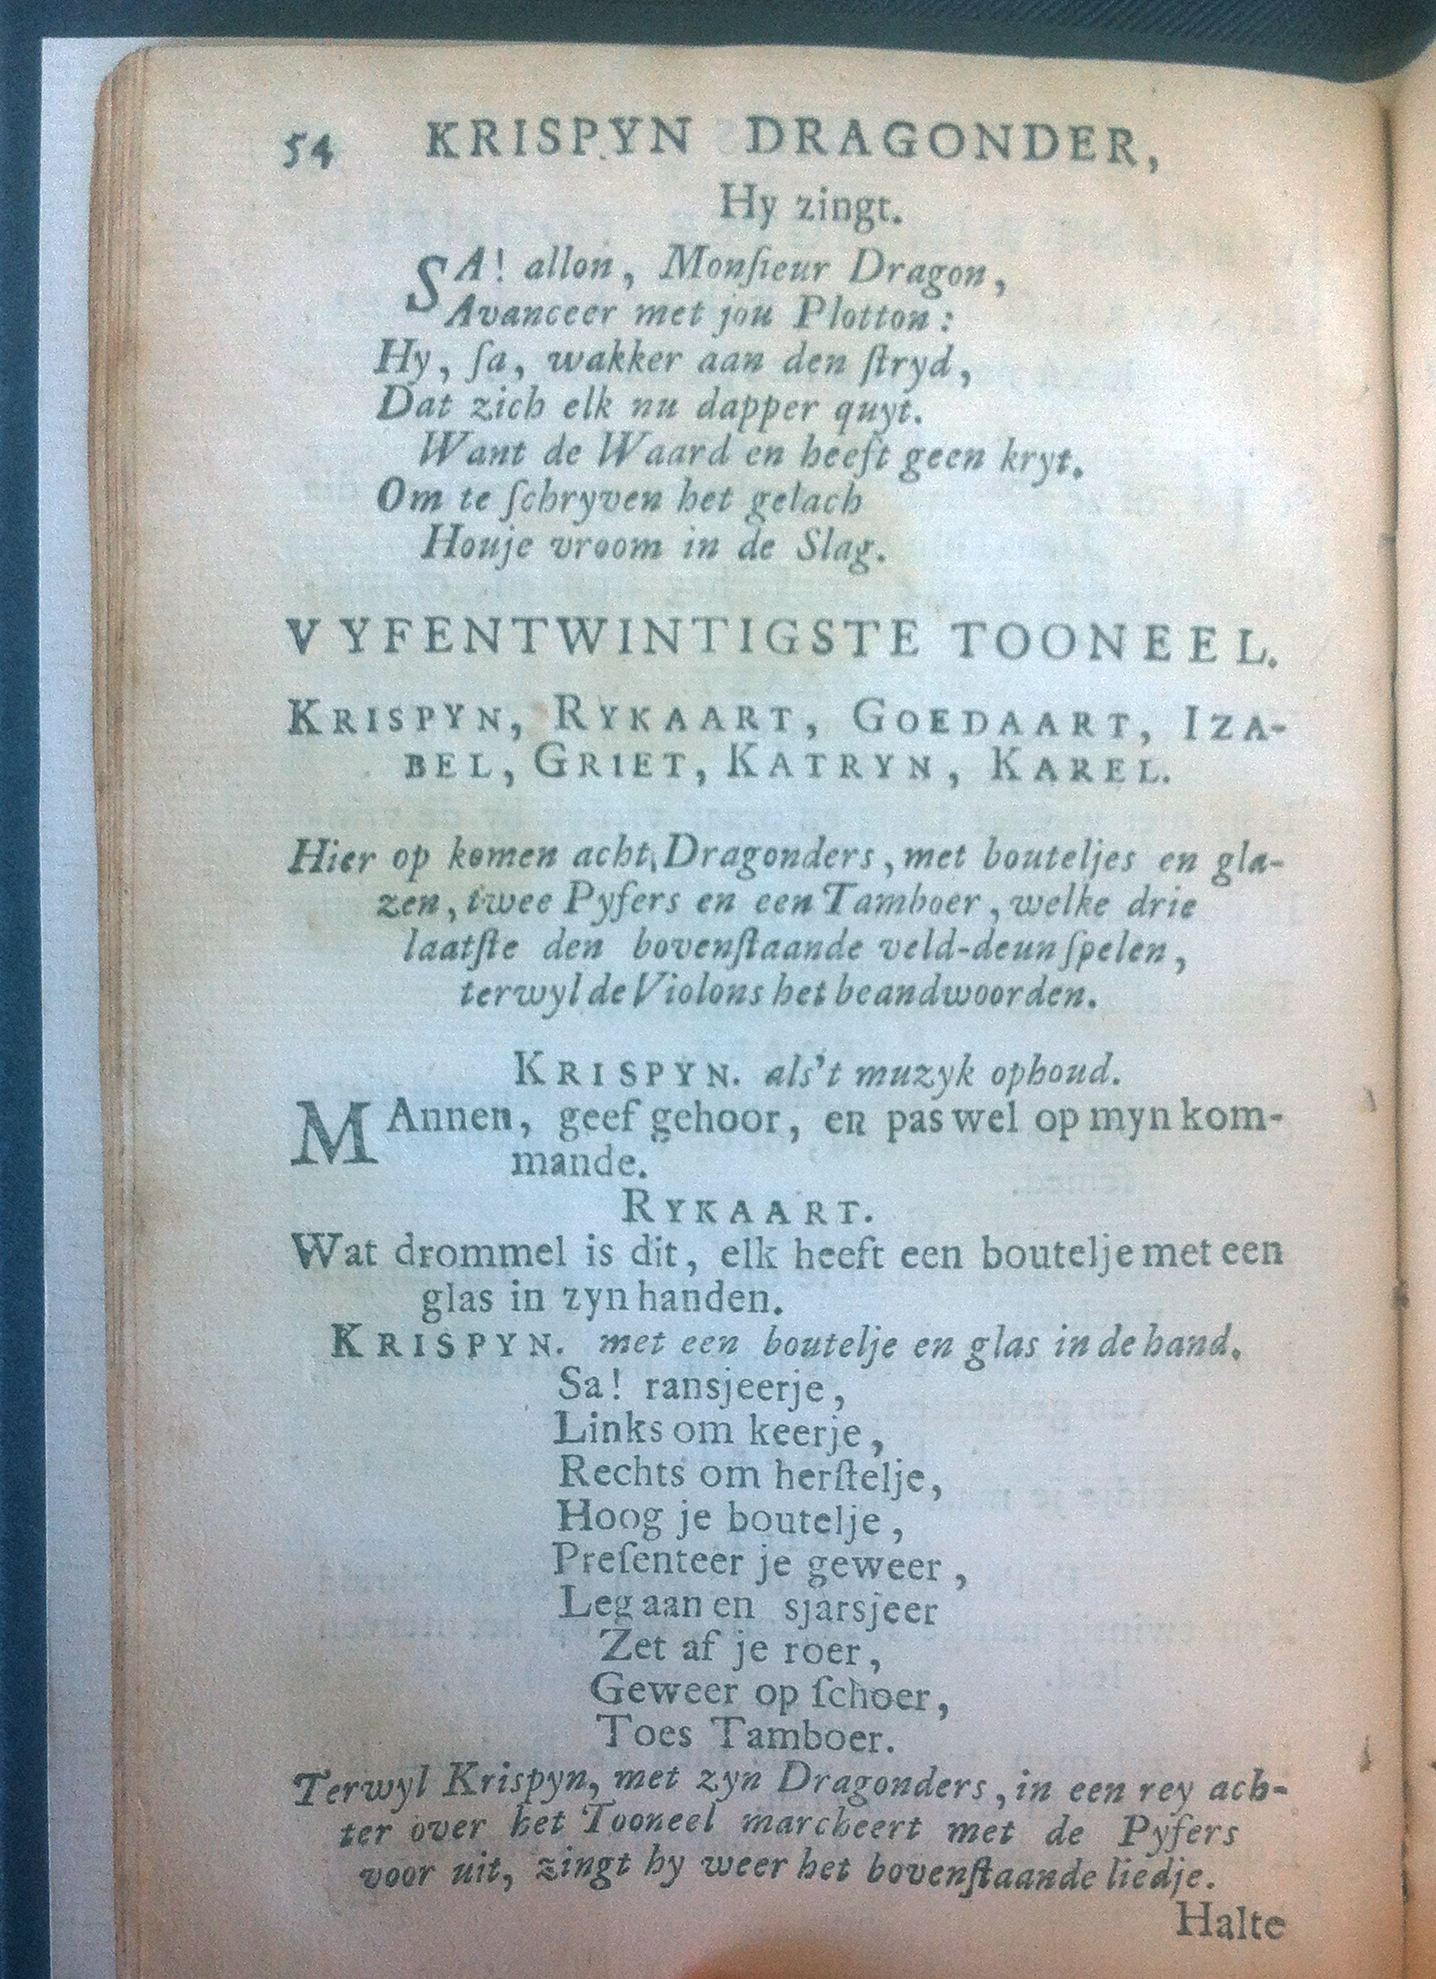 54 KRISPYN DRAGONDER,
Hy zingt.
SA! allon, Monſieur Dragon,
Avanceer met jou Plotton:
Hy, ſa, wakker aan den ſtryd,
Dat zich elk nu dapper quyt.
Want de Waard en heeft geen kryt.
Om te ſchryven het gelach
Houje vroom in de Slag.
VYFENTWINTIGSTE TOONEEL.
KRISPYN, RYKAART, GOEDAART, IZA-
BEL, GRIET, KATRYN, KAREL.
Hier op komen acht Dragonders, met bouteljes en gla-
zen, twee Pyfers en een Tamboer, welke drie
laatſte den bovenſtaande veld-deun ſpelen,
terwyl de Violons het beandwoorden.
KRISPYN. als't muzyk ophoud.
MAnnen, geef gehoor, en pas wel op myn kom-
mande.
RYKAART.
Wat drommel is dit, elk heeft een boutelje met een
glas in zyn handen.
KRISPYN. met een boutelje en glas in de hand.
Sa! ransjeerje,
Links om keerje,
Rechts om herſtelje,
Hoog je boutelje,
Preſenteer je geweer,
Leg aan en sjarsjeer
Zet af je roer,
Geweer op ſchoer,
Toes Tamboer.
Terwyl Krispyn, met zyn Dragonders, in een rey ach-
ter over het Tooneel marcheert met de Pyfers
voor uit, zingt hy weer het bovenſtaande liedje.
Halte